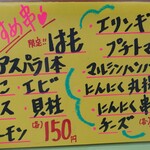 すめ串
限定!! はも
アスパラ1本
こ エビ
ス 貝柱
ーモン
(各) 150円
エリンギ
プチトマ
マルシンハンバ
にんにく丸
にんにく串
チーズ (各)